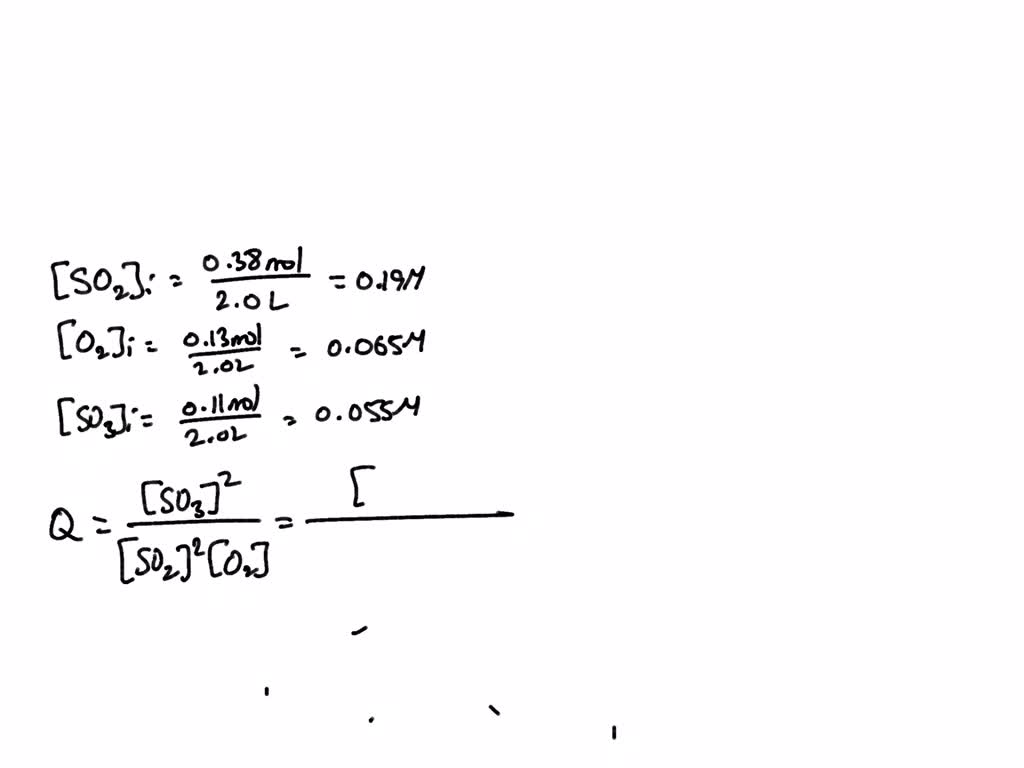 [SO₂]i = 0.38 mol / 2.0 L = 0.19M
[O₂]i = 0.13mol / 2.0L = 0.065M
[SO₃]i = 0.11mol / 2.0L = 0.055M
Q = [SO₃]² / [SO₂]²[O₂] = [